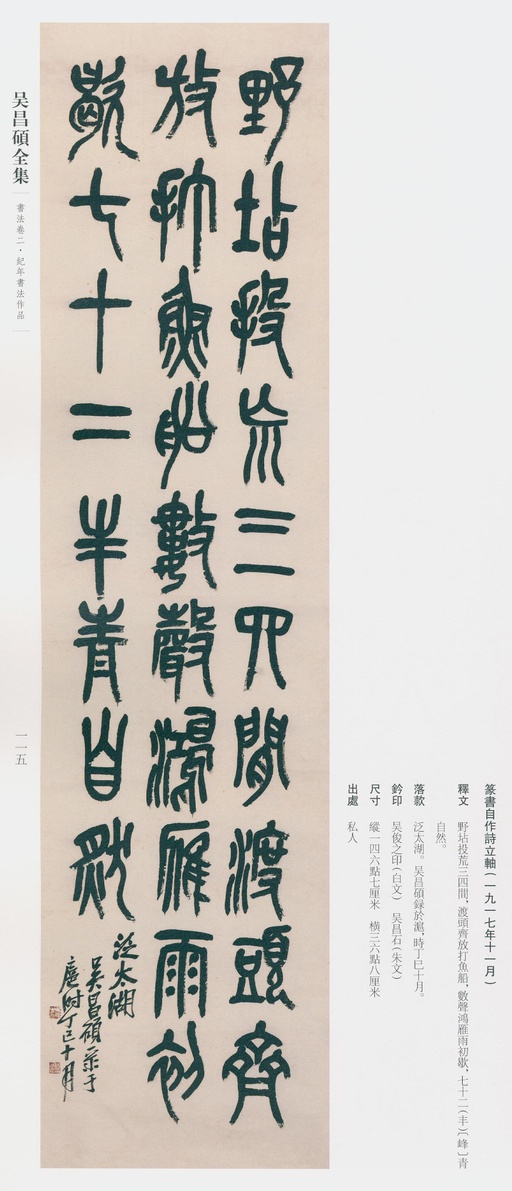 野坫投㡆三四間渡頭齊
放打魚船數聲鴻雁雨初
歇七十二丰青自然
泛太湖
吳昌碩录于
滬時丁巳十月
篆書自作詩立軸(一九一七年十一月)
釋文 野坫投荒三四間,渡頭齊放打魚船,數聲鴻雁雨初歇,七十二(丰)〔峰〕青
自然。
落款 泛太湖。吳昌碩録於滬,時丁巳十月。
鈐印 吳俊之印(白文) 吳昌石(朱文)
尺寸 縱一四六點七厘米 橫三六點八厘米
出處 私人
吴昌碩全集
書法卷二·紀年書法作品
一一五